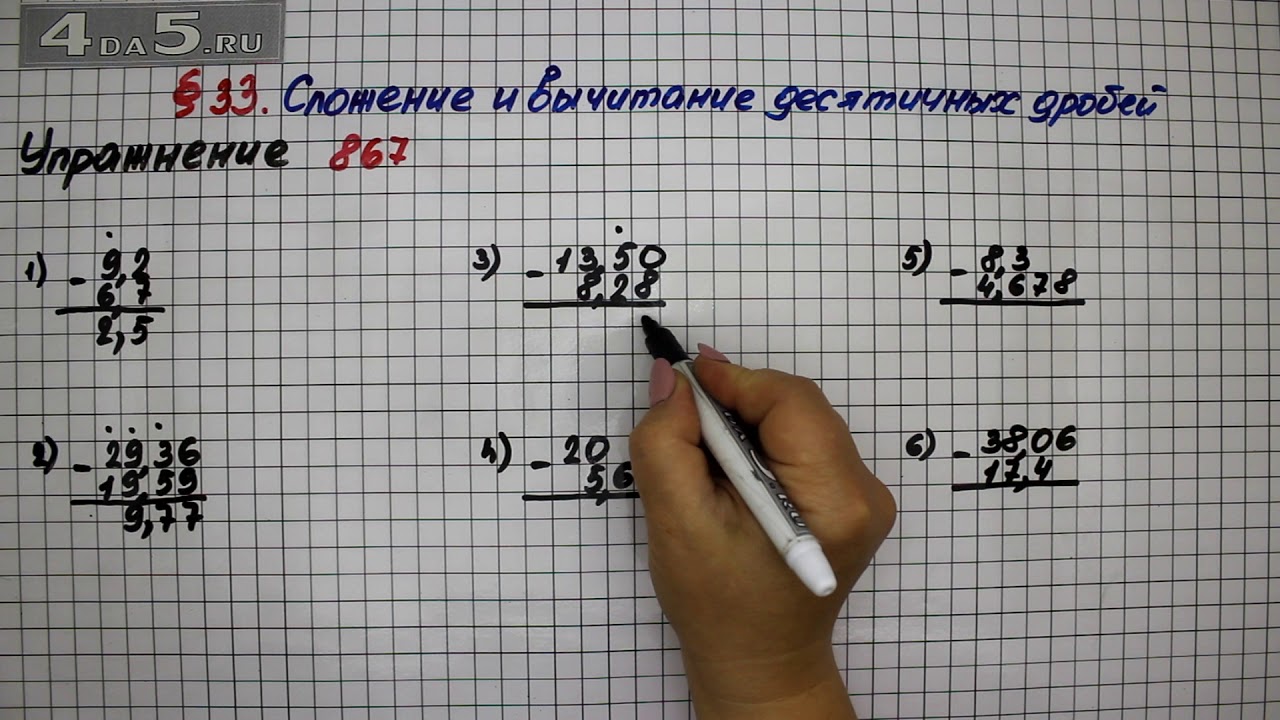 4DA5.RU
§ 33. Сложение и вычитание десятичных дробей
Упражнение 867
1) - 9,2
6,7
2,5
2) - 29,36
19,59
9,77
3) - 13,50
8,28
4) - 20
5,6
5) - 8,3
4,678
6) - 38,06
17,4